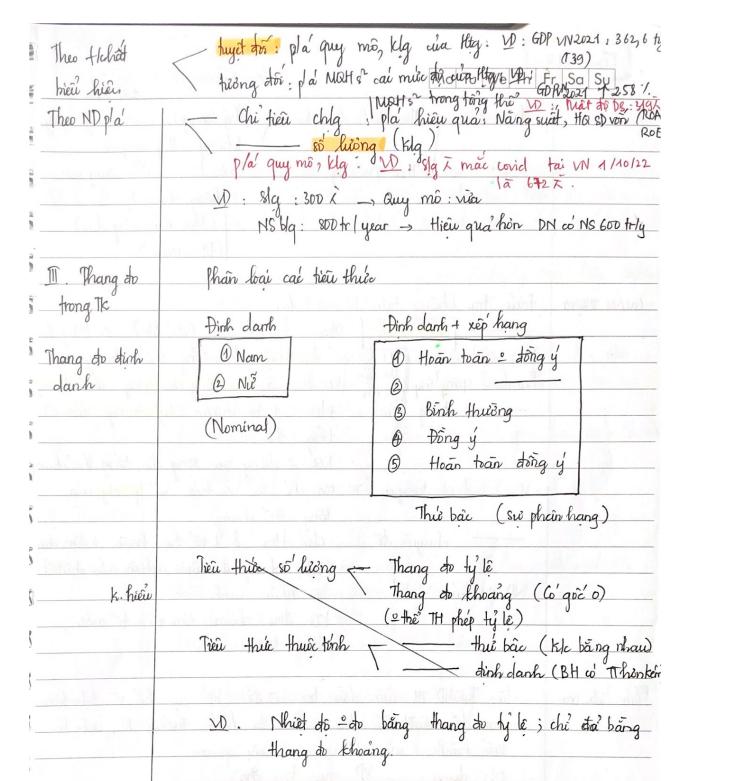 Theo t/chất biểu hiện
tuyệt đối: p/á quy mô, klg của Htg: VD: GDP VN2021: 362,6 tỷ
(T39)
tương đối: p/á MQH s² các mức độ của Htg VD:
Fr Sa Su
GDPVN2021 ↑ 2,58%
MQH s² trong tổng thể VD: Mật độ DS:
Theo ND p/á
Chỉ tiêu chlg: p/á hiệu quả: Năng suất, HQ SD vốn (ROA
ROE
số lượng (klg)
p/á quy mô, klg: VD: s/g λ mắc covid tại VN 1/10/22
là 672 λ.
VD: slg: 300 λ → Quy mô: vừa
NS blq: 800tr/year → Hiệu quả hơn DN có NS 600tr/y
III. Thang đo trong TK
Phân loại các tiêu thức
Định danh
Định danh + xếp hạng
Thang đo định danh
① Nam
② Nữ
(Nominal)
① Hoàn toàn o đồng ý
② ———
③ Bình thường
④ Đồng ý
⑤ Hoàn toàn đồng ý
Thứ bậc (sự phân hạng)
Tiêu thức số lượng
Thang đo tỷ lệ
k. hiểu
Thang đo khoảng (Có gốc 0)
(o thể TH phép tỷ lệ)
Tiêu thức thuộc tính
——— thứ bậc (K/c bằng nhau)
——— định danh (BH có
VD. Nhiệt độ o đo bằng thang đo tỷ lệ; chỉ đo bằng
thang đo khoảng.